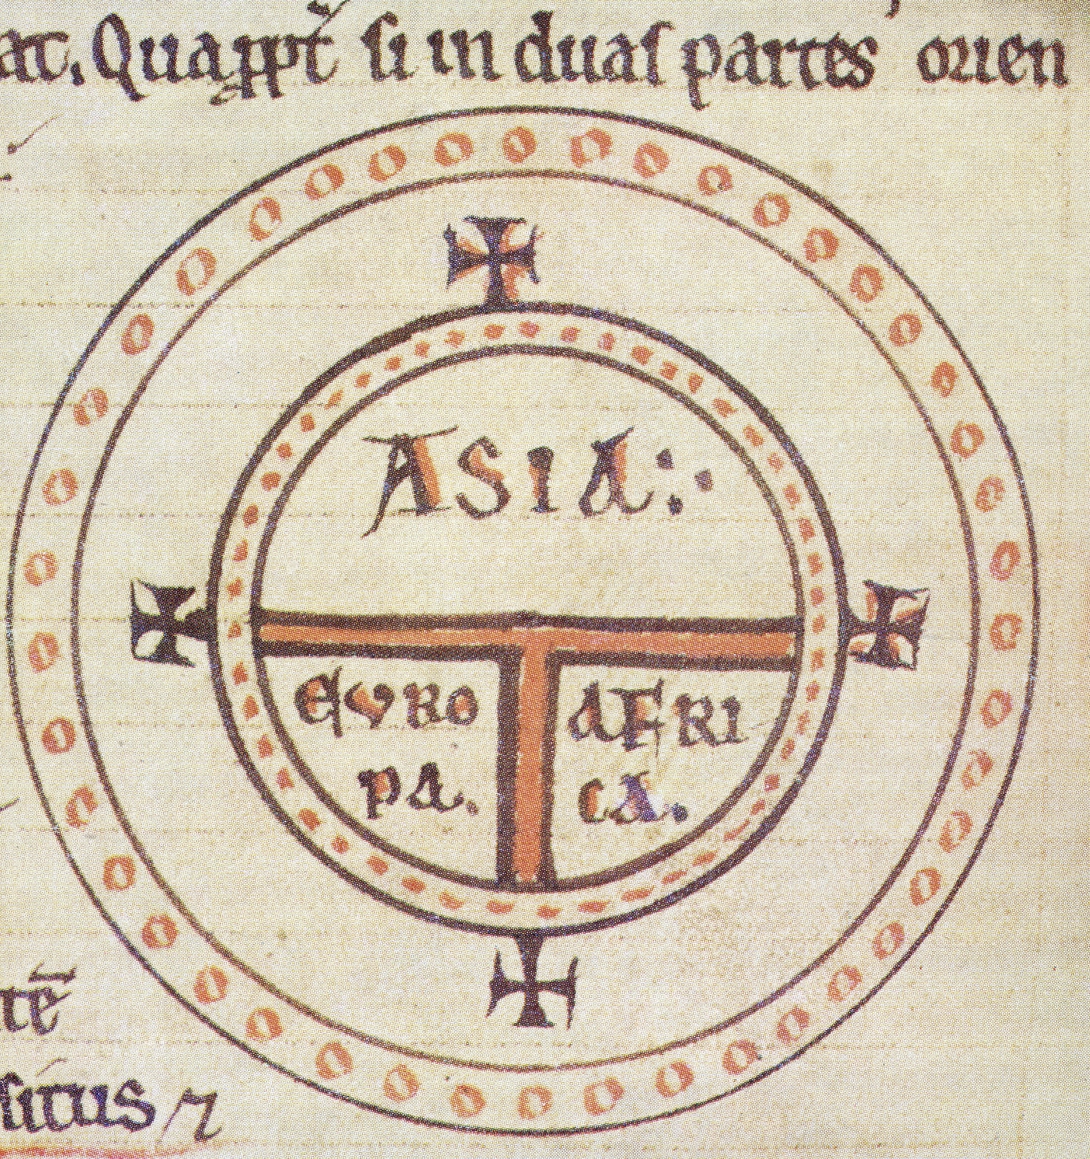 at. Quapp̄t si in duas partes orien
ASIA:·
EVRO
PA.
AFRI
CA.
tē
situs ⁊